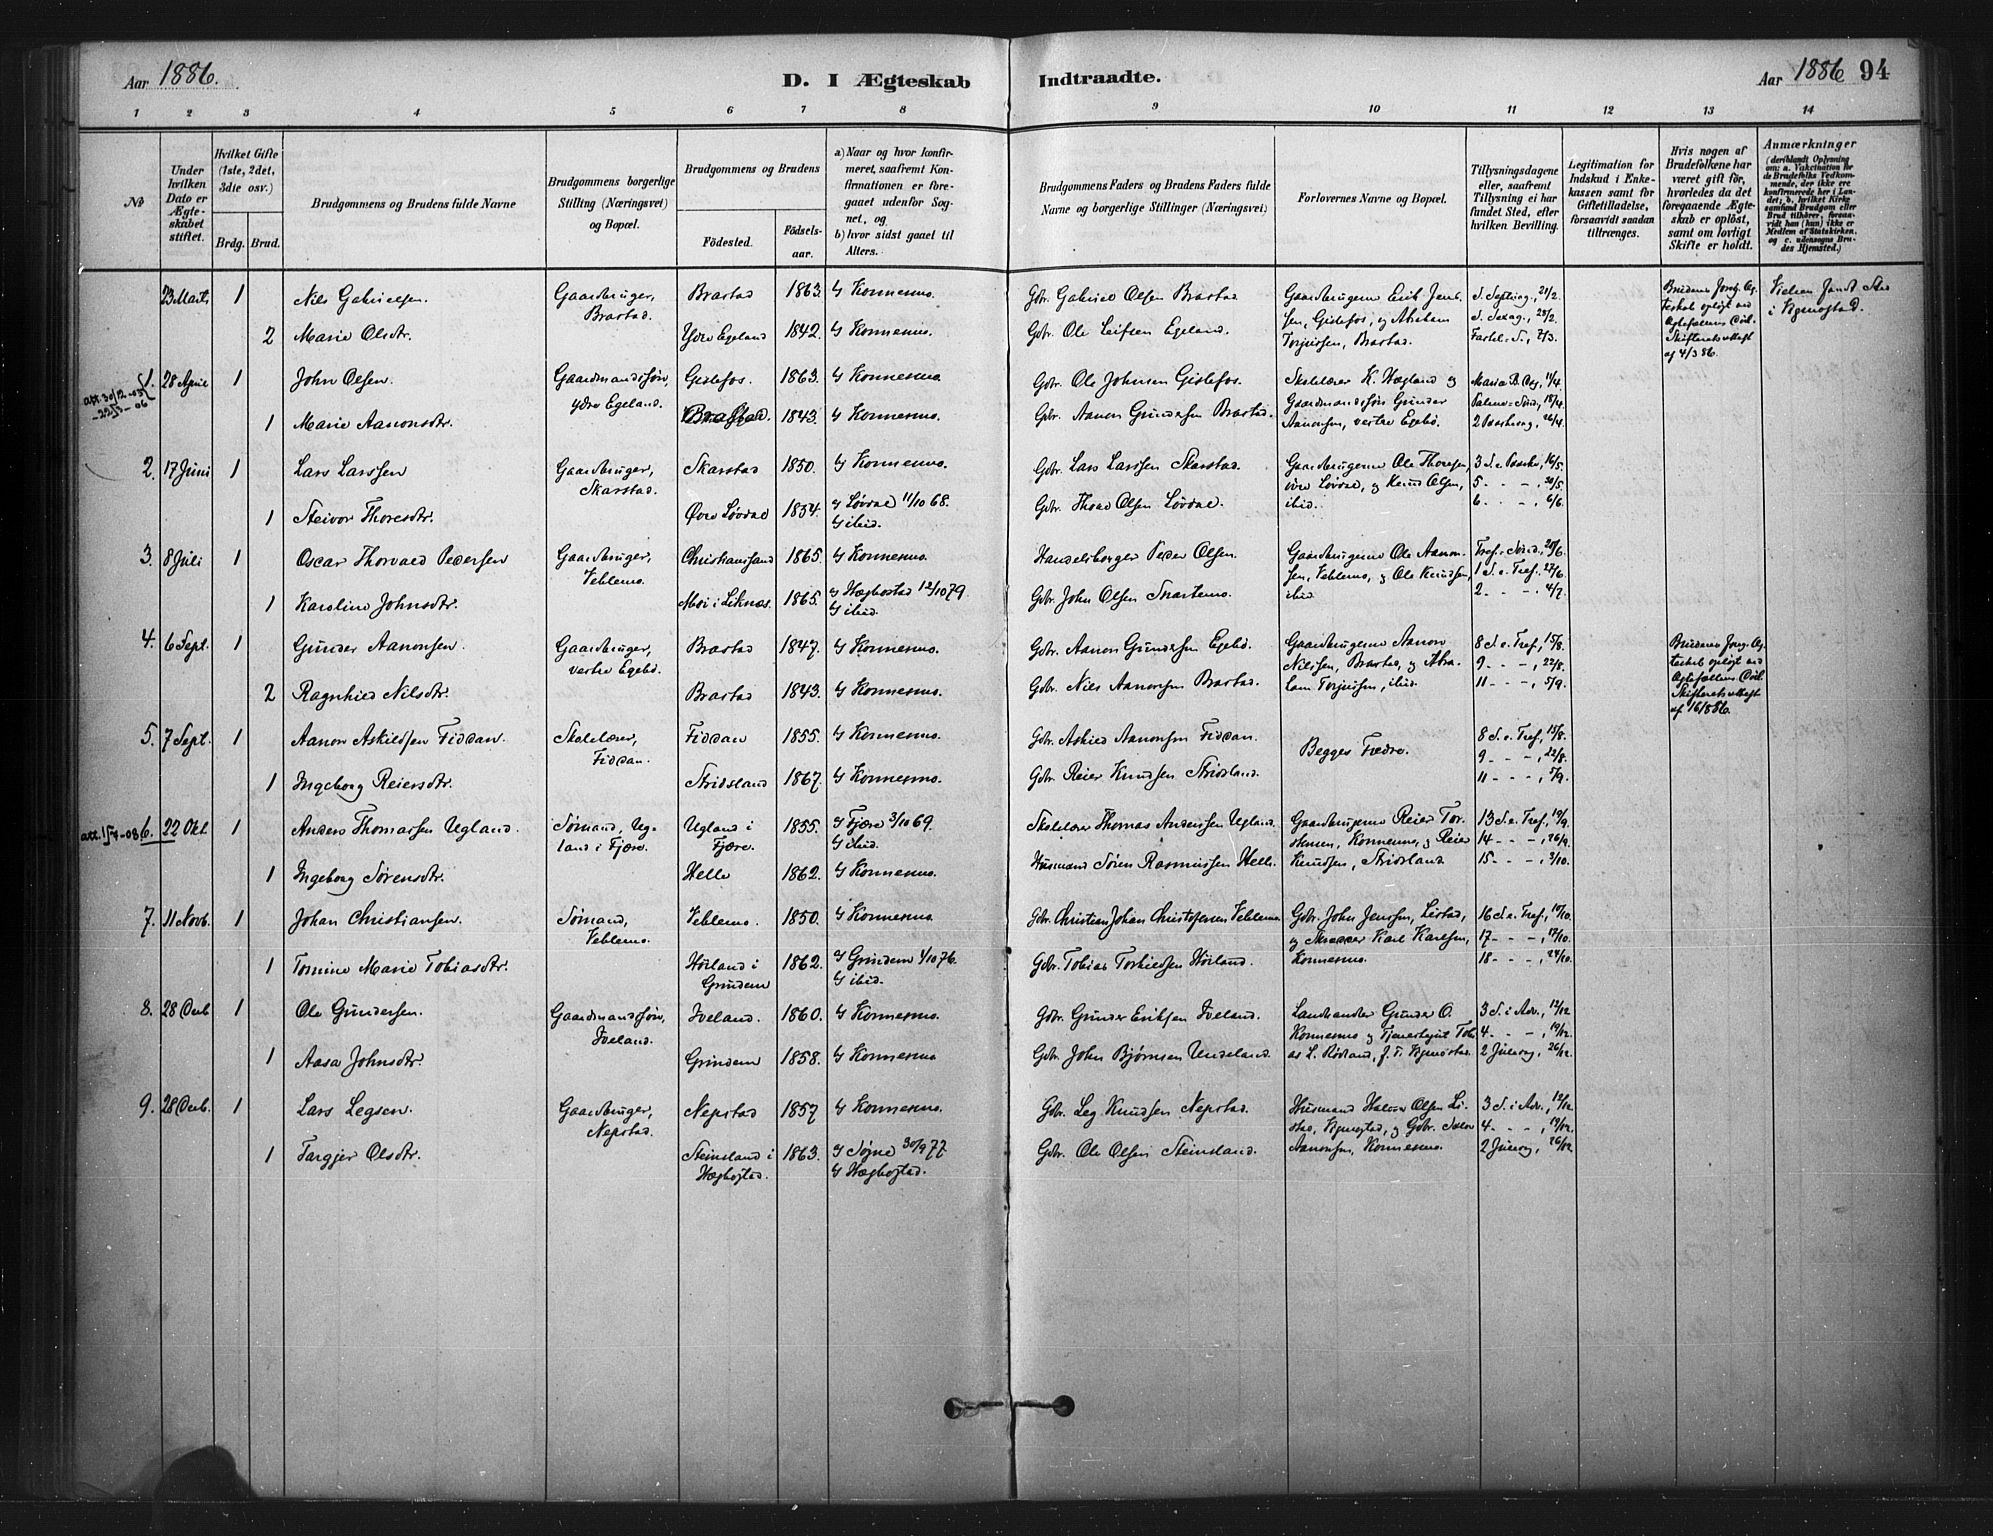 Aar 1886.
D. I Ægteskab Indtraadte.
Aar 1886 94
1 2 3 4 5 6 7 8 9 10 11 12 13 14
No
Under hvilken Dato er Ægteskabet stiftet.
Hvilket Gifte (1ste, 2det, 3die osv.)
Brdg. Brud.
Brudgommens og Brudens fulde Navne
Brudgommens borgerlige Stilling (Næringsvei) og Bopæl.
Brudgommens og Brudens
Fødested. Fødselsaar.
a) Naar og hvor konfirmeret, saafremt Konfirmationen er foregaaet udenfor Sognet, og
b) hvor sidst gaaet til Alters.
Brudgommens Faders og Brudens Faders fulde Navne og borgerlige Stillinger (Næringsvei)
Forlovernes Navne og Bopæl.
Tillysningsdagene eller, saafremt Tillysning ei har fundet Sted, efter hvilken Bevilling.
Legitimation for Indskud i Enkekassen samt for Giftetilladelse, forsaavidt saadan tiltrænges.
Hvis nogen af Brudefolkene har været gift før, hvorledes da det foregaaende Ægteskab er opløst, samt om lovligt Skifte er holdt.
Anmærkninger
23 Marts 1 Nils Gabrielsen. Gaardbruger, Brastad. Brastad 1863. Konnesmo. Gbr. Gabriel Olsen Brastad Gaardbrugerne Erik Jensen, Gislefos, og Abraham Torjussen, Brastad. S. Septuag., 21/2. S. Sexag., 28/2. Fastel. S., 7/3.
2 Marie Olsdtr. Ydre Egeland 1842. Konnesmo. Gbr. Ole Leifsen Egeland.
1. 28 April 1 John Olsen. Gaardmandssøn, ydre Egeland. Gislefos. 1863. Konnesmo. Gbr. Ole Johnsen Gislefos. Skolelærer K. Hægland og Gaardmandssøn Gunder Aanonsen, vestre Egebø. Maria B. Dag, 11/4. Palmesønd., 18/4. 2 Paaskedag, 26/4.
att. 30/12-05 - 22/3-06
1 Marie Aanonsdtr. Brastad. 1843. Konnesmo. Gbr. Aanon Gundersen Brastad.
2. 17 Juni 1 Lars Larssen Gaardbruger, Skarstad. Skarstad 1850. Konnesmo. Gbr. Lars Larssen Skarstad. Gaardbrugerne Ole Thorsen, øvre Løvdal, og Knud Olsen, ibid. 3 S. e. Paaske, 16/5. 5 - - -, 30/5. 6 - - -, 6/6.
1 Steivor Thoresdtr. Øvre Løvdal 1854. Løvdal 11/10 68. ibid. Gbr. Thore Olsen Løvdal.
3. 8 Juli 1 Oscar Thorvald Pedersen Gaardbruger, Veblemo. Christianssand 1865. Konnesmo. Handelsborger Peder Olsen. Gaardbrugerne Ole Aanonsen, Veblemo, og Ole Knudsen, ibid. Tref. Sønd., 20/6. 1 S. e. Tref., 27/6. 2 - - -, 4/7.
1 Karoline Johnsdtr. Moi i Liknæs. 1865. Hægbostad 12/10 79. ibid. Gbr. John Olsen Snartemo.
4. 6 Sept. 1 Gunder Aanonsen. Gaardbruger, vestre Egebø. Brastad 1847. Konnesmo. Gbr. Aanon Gundersen Egebø. Gaardbrugerne Aanon Nilssen, Brastad, og Abraham Torjussen, ibid. 8 S. e. Tref., 15/8. 9 - - -, 22/8. 11 - - -, 5/9.
2 Ragnhild Nilsdtr. Brastad 1843. Konnesmo. Gbr. Nils Aanonsen Brastad.
5. 7 Sept. 1 Aanon Askildsen Fiddan. Skolelærer, Fiddan. Fiddan 1855. Konnesmo. Gbr. Askild Aanonsen Fiddan. Begges Fædre. 8 S. e. Tref., 15/8. 9 - - -, 22/8. 11 - - -, 5/9.
1 Ingeborg Reiersdtr. Stridsland 1867. Konnesmo. Gbr. Reier Knudsen Stridsland.
6. 22 Okt. 1 Anders Thomassen Ugland. Sømand, Ugland i Fjære. Ugland i Fjære. 1855. Fjære 3/10 69. ibid. Skolelærer Thomas Anderssen Ugland. Gaardbrugerne Reier Torstensen, Konnesmo, og Reier Knudsen, Stridsland 13 S. e. Tref., 19/9. 14 - - -, 26/9. 15 - - -, 3/10.
1 Ingeborg Sørensdtr. Helle 1862. Konnesmo. Husmand Søren Rasmussen Helle.
7. 11 Novb. 1 Johan Christiansen. Sømand, Veblemo. Veblemo. 1850. Konnesmo. Gbr. Christian Johan Christofersen Veblemo. Gbr. John Jenssen, Listad, og Skrædder Karl Karlsen, Konnesmo. 16 S. e. Tref., 10/10. 17 - - -, 17/10. 18 - - -, 24/10.
1 Tomine Marie Tobiasdtr. Høiland i Grindem 1862. Grindem 1/10 76. ibid. Gbr. Tobias Torkildsen Høiland.
8. 28 Decb. 1 Ole Gundersen. Gaardmandssøn, Iveland. Iveland. 1860. Konnesmo. Gbr. Gunder Eriksen Iveland. Landhandler Gunder O. Konnesmo og Tjenestegut Tobias L. 3 S. i Adv., 12/12. 4 - - -, 19/12. 2 Juledag, 26/12.
1 Aasa Johnsdtr. Grindem 1858. Konnesmo Gbr. John Bjørnsen Undeland.
9. 28 Decb. 1 Lars Legsen. Gaardbruger, Nepstad. Nepstad 1857 Konnesmo. Gbr. Leg Knudsen Nepstad. Husmand Halvor Olsen Listad, og Gbr. Aanonsen, Konnesmo. 3 S. i Adv., 12/12. 4 - - -, 19/12. 2 Juledag, 26/12.
1 Targjer Olsdtr. Steinsland i Hægbostad. 1863. Søgne 30/9 77. Hægbostad. Gbr. Ole Olsen Steinsland.